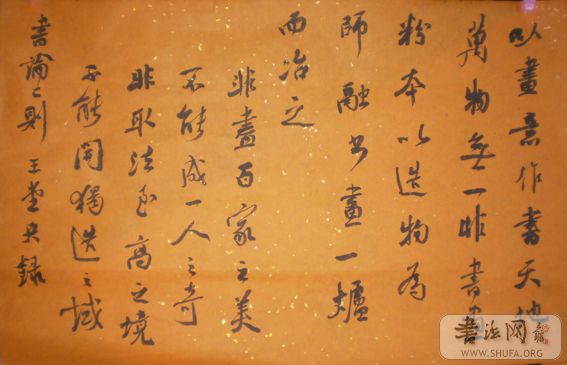 以畫意作書天地
萬物無一非書畫
粉本以造物為
師融書畫一爐
而冶之
非盡百家之美
不能成一人之奇
非取法至高之境
不能開獨造之域
書論二則 王堂兵錄
書法网
WWW.SHUFA.ORG